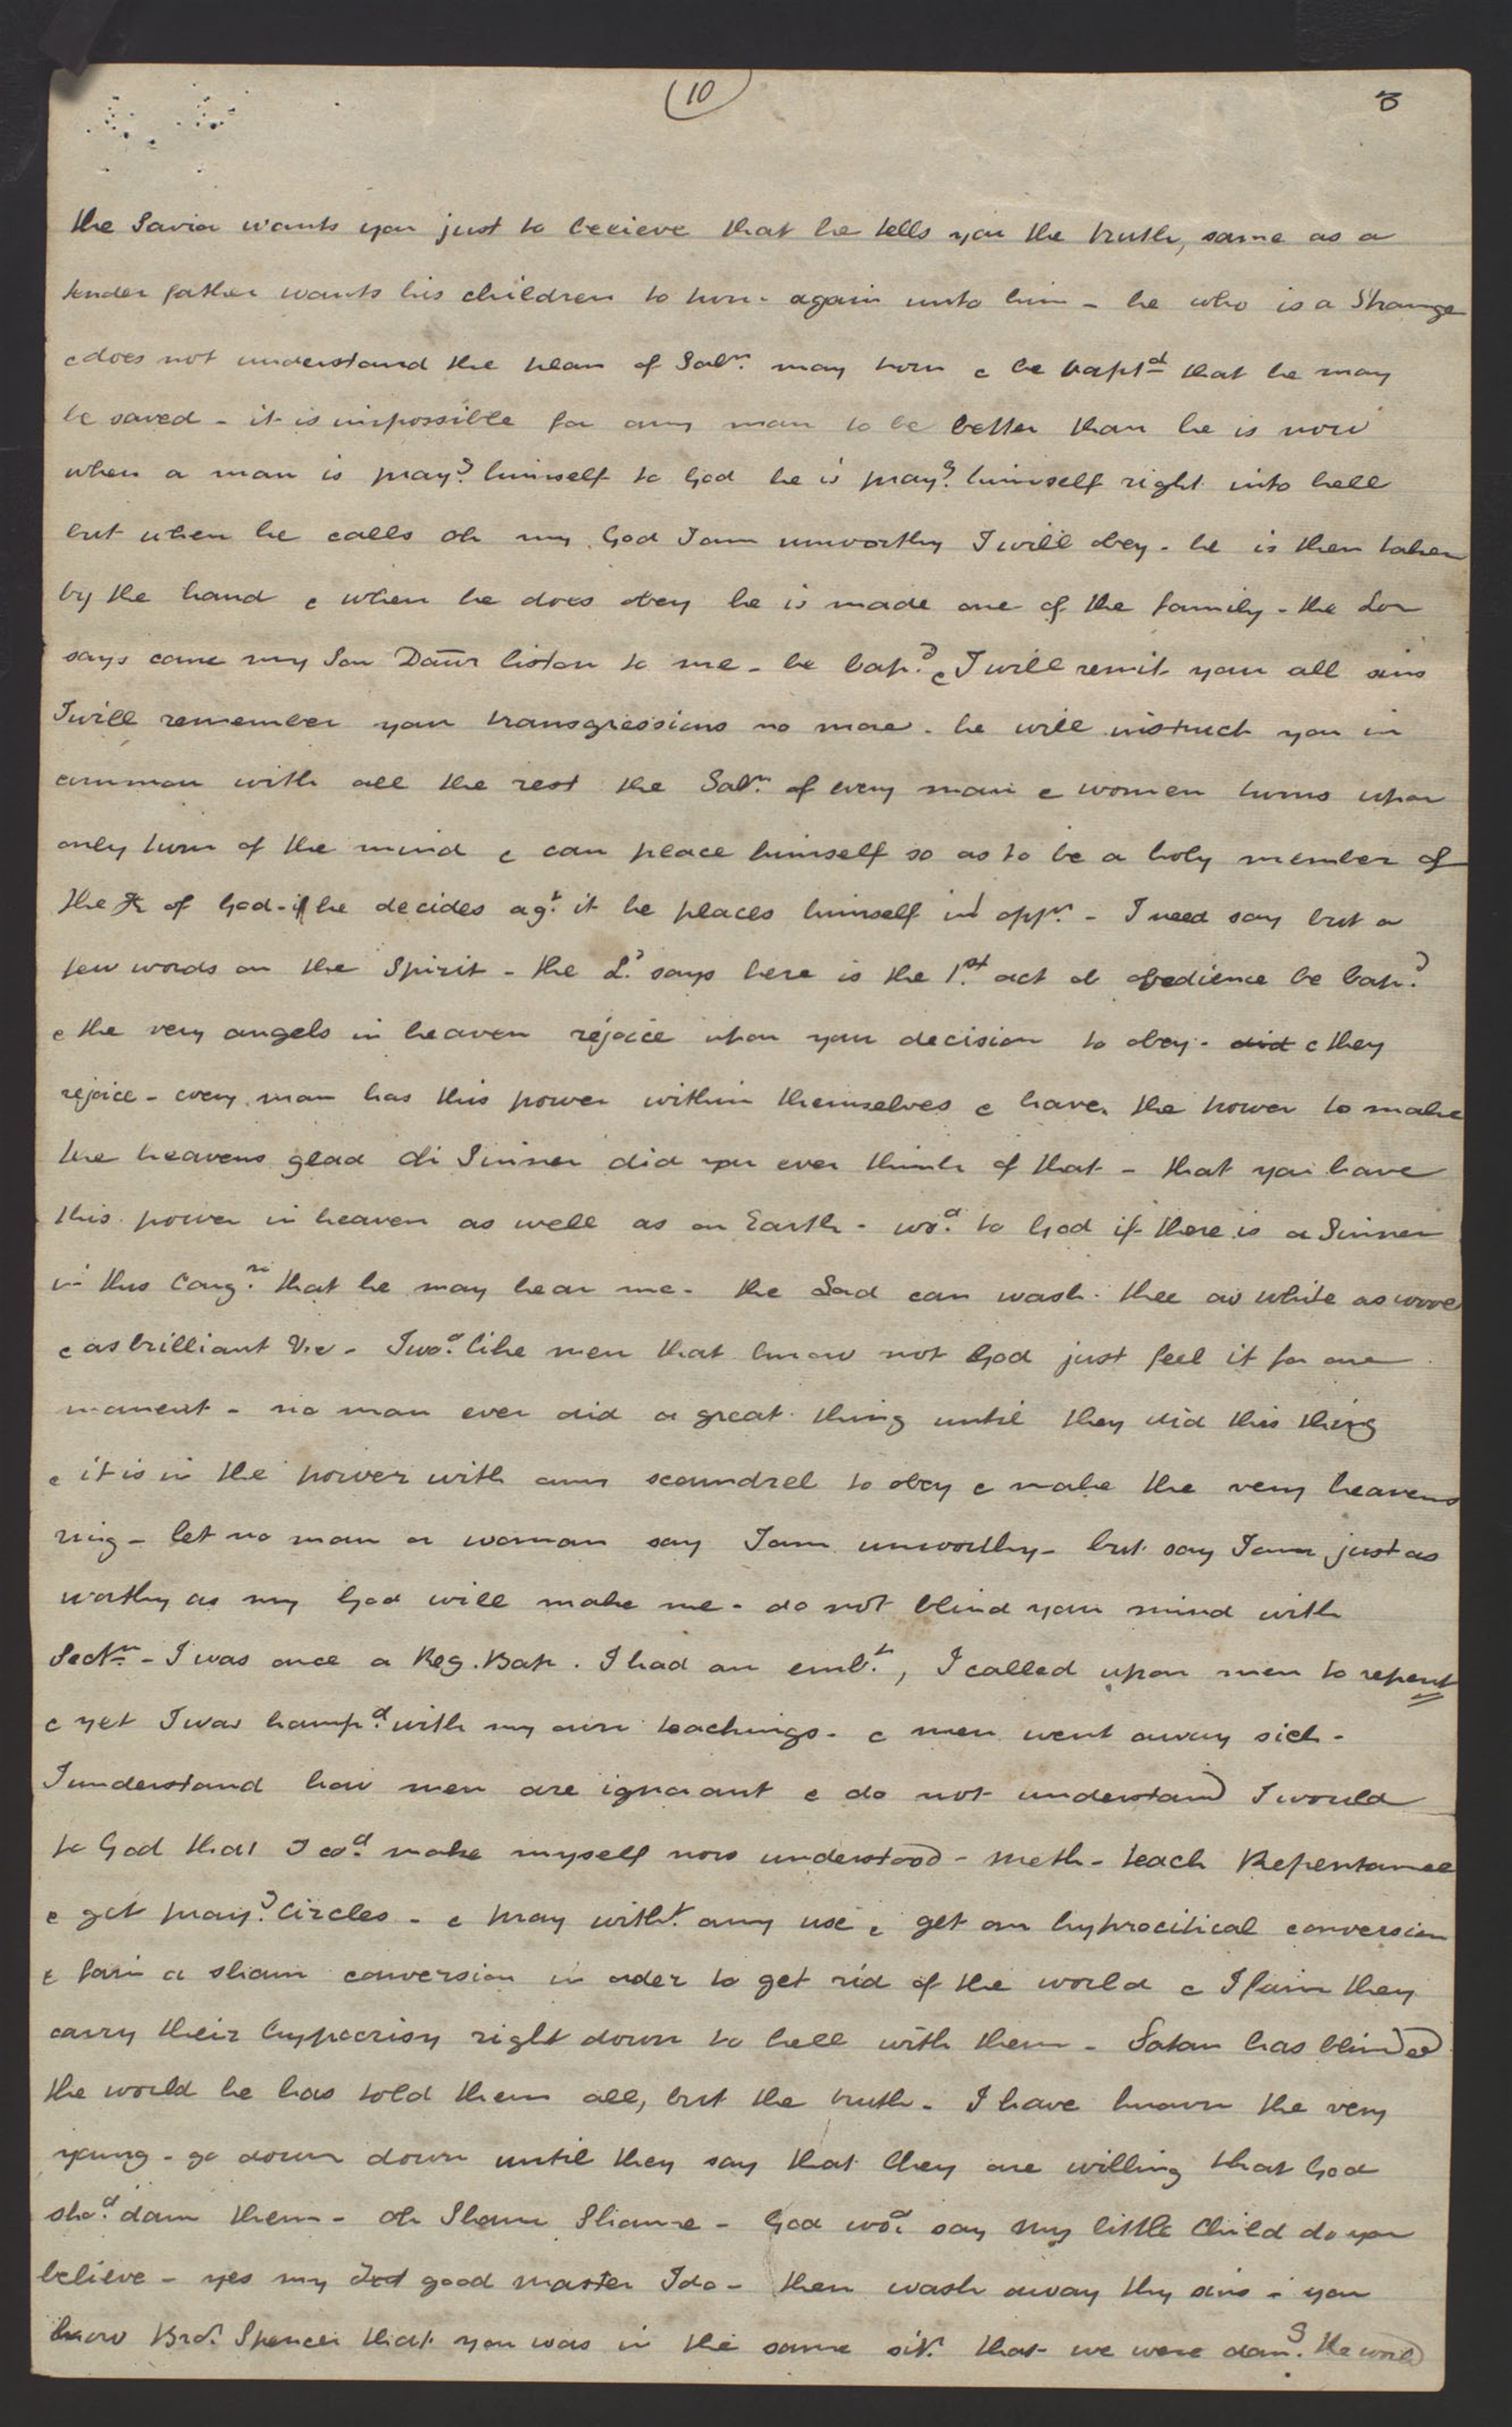 (10)
3
the Savior wants you just to believe that he tells you the truth, same as a
tender father wants his children to turn again unto him - he who is a Strange
& does not understand the plan of Saln. may turn & be baptd that he may
be saved - it is impossible for any man to be better than he is now
when a man is prayg. himself to God he is prayg. himself right into hell
but when he calls oh my God I am unworthy I will obey - he is then taken
by the hand & when he does obey he is made one of the family - the Lor
says come my Son Daur listen to me - be bapd. & I will remit your all sins
I will remember your transgressions no more - he will instruct you in
common with all the rest the Saln. of every man & women turns upon
only turn of the mind & can place himself so as to be a holy member of
the K of God - if he decides agt. it he places himself in oppn. - I need say but a
few words on the Spirit - the Ld. says here is the 1st. act ob obedience be bapd.
& the very angels in heaven rejoice upon your decision to obey - did & they
rejoice - every man has this power within themselves & have the power to make
the heavens glad oh Sinner did you ever think of that - that you have
this power in heaven as well as on Earth - wod. to God if there is a Sinner
in this Congn. that he may hear me - the Lord can wash thee as white as wool
& as brilliant - I wod. like men that know not God just feel it for one
moment - no man ever did a great thing until they did this thing
& it is in the power with any scoundrel to obey & make the very heavens
ring - let no man or woman say I am unworthy - but say I am just as
worthy as my God will make me - do not blind your mind with
Sectn. - I was once a Reg. Bap. I had an embt., I called upon men to repent
& yet I was hampd. with my own teachings - & men went away sick -
I understand how men are ignorant & do not understand I would
to God that I cod. make myself now understood - Meth - teach Repentance
& get prayg. Circles - & pray witht. any use & get an hyprocitical conversion
& form a sham conversion in order to get rid of the world & I fain they
carry their hypocrisy right down to hell with them - Satan has blinded
the world he has told them all, but the truth - I have known the very
young - go down down until they say that they are willing that God
shod. dam them - oh Sham Shame - God wod. say my little Child do you
believe - yes my good master I do - then wash away thy sins - you
know Bror. Spencer that you was in the same sit. that we were damg. the world